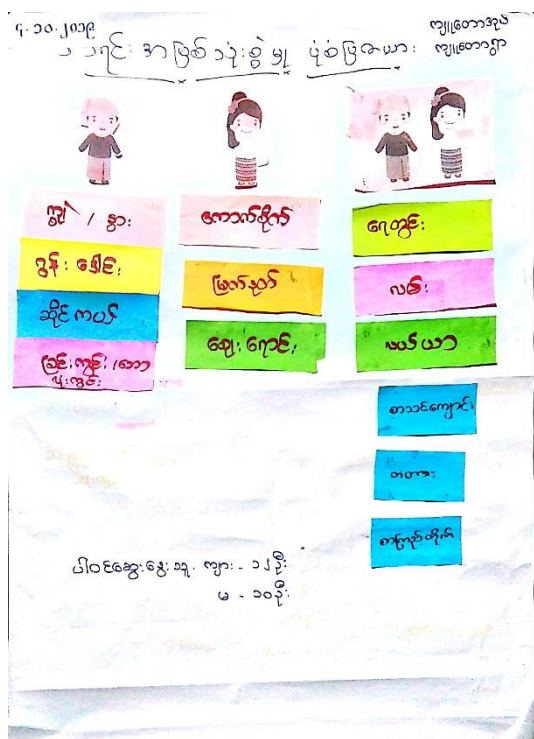 ၄.၁၀.၂၀၁၉
ကျူတောရွာ
အရင်းအမြစ်သုံးစွဲမှု ပုံစံပြဇယား
ကျွဲ / နွား
ဆိုင်ကယ်
ခြင်းကွင်း /ဘော
လုံးကွင်း
ကောက်စိုက်
မြက်နုတ်
ဈေးရောင်း
ရေတွင်း
လမ်း
လယ်ယာ
စာသင်ကျောင်း
တံတား
စာကြည့်တိုက်
ပါဝင်ဆွေးနွေးသူ. ကျား - ၁၂ဦး
မ - ၁၀ဦး